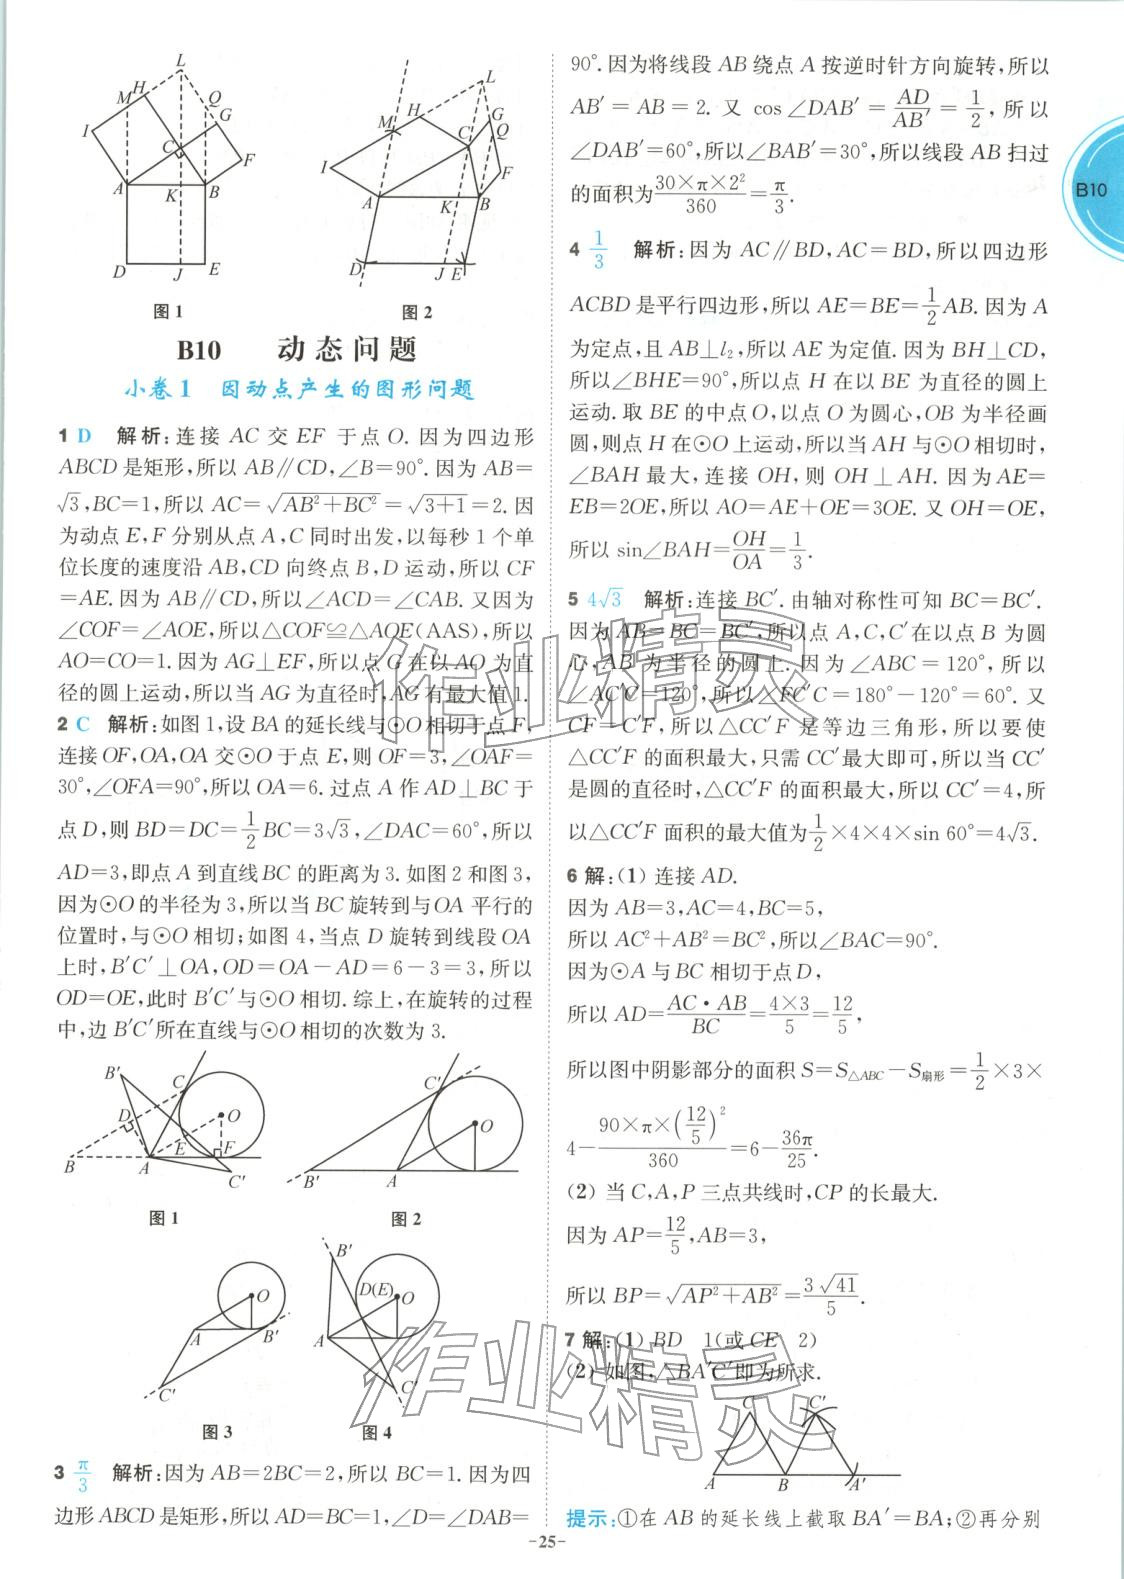 L
M
H
Q
G
I
C
F
A
K
B
D
J
E
图1
L
M
H
G
C
Q
I
F
A
K
B
D
J
E
图2
B10 动态问题
小卷1 因动点产生的图形问题
1 D 解析:连接 AC 交 EF 于点 O. 因为四边形
ABCD 是矩形,所以 AB∥CD,∠B=90°. 因为 AB=
√3,BC=1,所以 AC=√(AB²+BC²)=√(3+1)=2. 因
为动点 E,F 分别从点 A,C 同时出发,以每秒 1 个单
位长度的速度沿 AB,CD 向终点 B,D 运动,所以 CF
=AE. 因为 AB∥CD,所以∠ACD=∠CAB. 又因为
∠COF=∠AOE,所以△COF≌△AOE(AAS),所以
AO=CO=1. 因为 AG⊥EF,所以点 G 在以 AO 为直
径的圆上运动,所以当 AG 为直径时,AG 有最大值 1.
2 C 解析:如图 1,设 BA 的延长线与⊙O 相切于点 F,
连接 OF,OA,OA 交⊙O 于点 E,则 OF=3,∠OAF=
30°,∠OFA=90°,所以 OA=6. 过点 A 作 AD⊥BC 于
点 D,则 BD=DC=1/2BC=3√3,∠DAC=60°,所以
AD=3,即点 A 到直线 BC 的距离为 3. 如图 2 和图 3,
因为⊙O 的半径为 3,所以当 BC 旋转到与 OA 平行的
位置时,与⊙O 相切;如图 4,当点 D 旋转到线段 OA
上时,B′C′⊥OA,OD=OA-AD=6-3=3,所以
OD=OE,此时 B′C′与⊙O 相切. 综上,在旋转的过程
中,边 B′C′所在直线与⊙O 相切的次数为 3.
B′
C
D
O
E
F
B
A
C′
图1
C′
O
B′
A
图2
O
A
B′
C′
图3
B′
D(E)
O
A
C′
图4
3 π/3 解析:因为 AB=2BC=2,所以 BC=1. 因为四
边形 ABCD 是矩形,所以 AD=BC=1,∠D=∠DAB=
90°. 因为将线段 AB 绕点 A 按逆时针方向旋转,所以
AB′=AB=2. 又 cos∠DAB′=AD/AB′=1/2,所以
∠DAB′=60°,所以∠BAB′=30°,所以线段 AB 扫过
的面积为(30×π×2²)/360=π/3.
4 1/3 解析:因为 AC∥BD,AC=BD,所以四边形
ACBD 是平行四边形,所以 AE=BE=1/2AB. 因为 A
为定点,且 AB⊥l₂,所以 AE 为定值. 因为 BH⊥CD,
所以∠BHE=90°,所以点 H 在以 BE 为直径的圆上
运动. 取 BE 的中点 O,以点 O 为圆心,OB 为半径画
圆,则点 H 在⊙O 上运动,所以当 AH 与⊙O 相切时,
∠BAH 最大,连接 OH,则 OH⊥AH. 因为 AE=
EB=2OE,所以 AO=AE+OE=3OE. 又 OH=OE,
所以 sin∠BAH=OH/OA=1/3.
5 4√3 解析:连接 BC′. 由轴对称性可知 BC=BC′.
因为 AB=BC=BC′,所以点 A,C,C′在以点 B 为圆
心,AB 为半径的圆上. 因为∠ABC=120°,所以
∠AC′C=120°,所以∠FC′C=180°-120°=60°. 又
CF=C′F,所以△CC′F 是等边三角形,所以要使
△CC′F 的面积最大,只需 CC′最大即可,所以当 CC′
是圆的直径时,△CC′F 的面积最大,所以 CC′=4,所
以△CC′F 面积的最大值为1/2×4×4×sin 60°=4√3.
6 解:(1) 连接 AD.
因为 AB=3,AC=4,BC=5,
所以 AC²+AB²=BC²,所以∠BAC=90°.
因为⊙A 与 BC 相切于点 D,
所以 AD=(AC·AB)/BC=(4×3)/5=12/5,
所以图中阴影部分的面积 S=S△ABC-S扇形=1/2×3×
4-(90×π×(12/5)²)/360=6-36π/25.
(2) 当 C,A,P 三点共线时,CP 的长最大.
因为 AP=12/5,AB=3,
所以 BP=√(AP²+AB²)=3√41/5.
7 解:(1) BD 1(或 CE 2)
(2) 如图,△BA′C′即为所求.
C
C′
A
B
A′
提示:①在 AB 的延长线上截取 BA′=BA;②再分别
B10
-25-
作业精灵
作业精灵